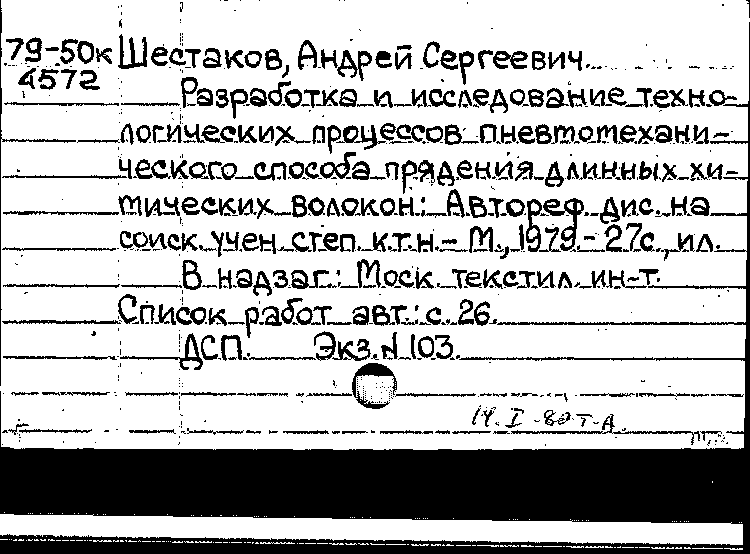 79-50к Шестаков, Андрей Сергеевич.
4572
Разработка и исследование техно-
логических процессов пневмомехани-
ческого способа прядения длинных хи-
мических волокон: Автореф. дис. на
соиск. учен. степ. к.т.н. - М., 1979. - 27с., ил.
В надзаг.: Моск. текстил. ин-т.
Список работ авт.: с. 26.
ДСП. Экз. N 103.
14. I -80 Т-А.